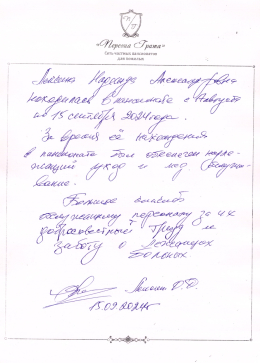 «Перетай Грата»
Сеть частных пансионатов
для пожилых
Надежда Александровна
находилась в пансионате с Августа
по 15 сентября 2024 года.
За время её нахождения
в пансионате был обеспечен надле-
жащий уход и мед обслужи-
вание.
Большое спасибо
обслуживающему персоналу за их
добросовестный труд и
заботу о
больных
15.09.2024г